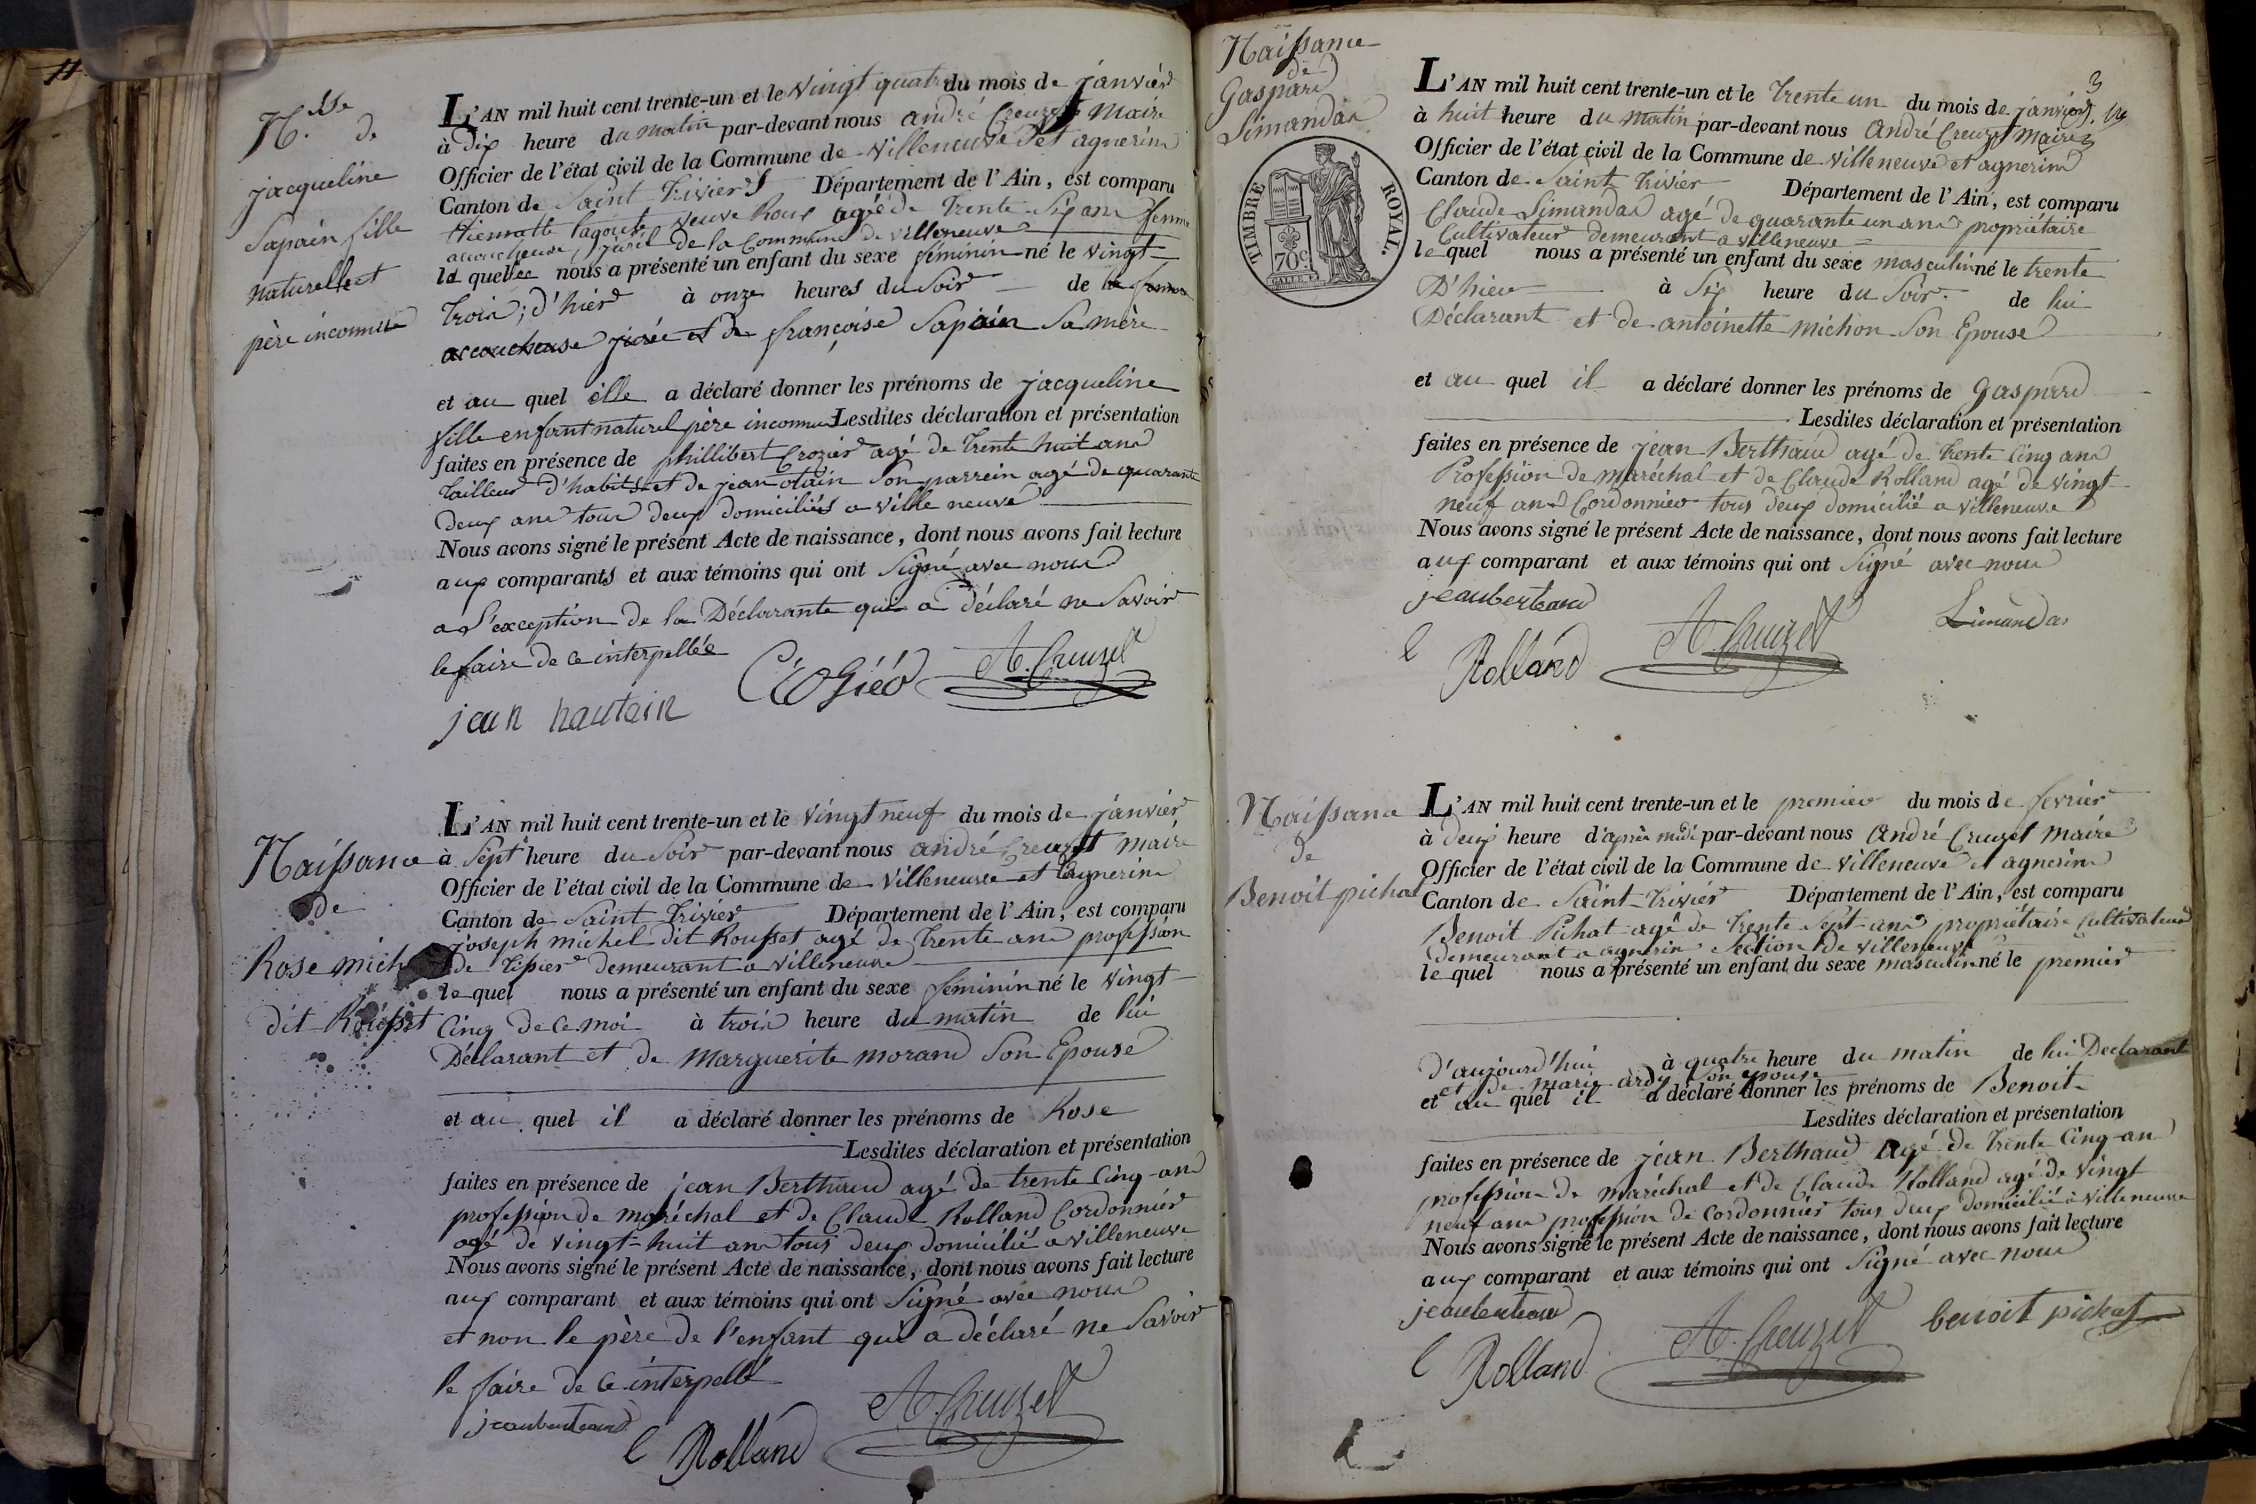 N.sse
de
jacqueline
Sapain fille
naturelle et
père inconnue
L'AN mil huit cent trente-un et le vingt quatre du mois de janvier
à dix heure du matin par-devant nous andré Creuzet Maire
Officier de l'état civil de la Commune de villeneuve et agnerins
Canton de Saint Trivier Département de l'Ain, est comparu
veuve Roux agée de Trente Six ans femme
accoucheuse juré de la Commune de villeneuve
la quelle nous a présenté un enfant du sexe féminin né le vingt
trois; d'hier à onze heures du Soir de la femme
accoucheuse jurée et de françoise Sapain Sa mère
et au quel elle a déclaré donner les prénoms de jacqueline
fille enfant naturel père inconnu Lesdites déclaration et présentation
faites en présence de phillibert Crozier agé de trente huit ans
tailleur d'habits et de jean otain Son parrein agé de quarante
deux ans tous deux domiciliés a ville neuve
Nous avons signé le présent Acte de naissance, dont nous avons fait lecture
aux comparants et aux témoins qui ont Signé avec nous
a L'exception de la Déclarante qui a déclaré ne Savoir
le faire de ce interpellée
A. Creuzet
jean hautain
Naissance
de
Rose michel
dit Rousset
L'AN mil huit cent trente-un et le vingt neuf du mois de janvier
à Sept heure du Soir par-devant nous andré Creuzet maire
Officier de l'état civil de la Commune de villeneuve et agnerins
Canton de Saint Trivier Département de l'Ain, est comparu
joseph michel dit Rousset agé de trente ans profession
de tipier demeurant a villeneuve
le quel nous a présenté un enfant du sexe féminin né le vingt
Cinq de Ce moi à trois heure du matin de lui
Déclarant et de Marguerite morand Son Epouse
et au quel il a déclaré donner les prénoms de Rose
Lesdites déclaration et présentation
faites en présence de jean Berthaud agé de trente Cinq ans
profession de maréchal et de Claude Rolland Cordonnier
agé de vingt-huit ans tous deux domicilié a villeneuve
Nous avons signé le présent Acte de naissance, dont nous avons fait lecture
aux comparant et aux témoins qui ont Signé avec nous
et non le père de l'enfant qui a déclaré ne Savoir
le faire de Ce interpellé
A. Creuzet
C Rolland
3
Naissance
de
Gaspard
Limandas
TIMBRE ROYAL.
70 c.
L'AN mil huit cent trente-un et le trente un du mois de janvier
à huit heure du matin par-devant nous André Creuzet Maire
Officier de l'état civil de la Commune de villeneuve et agnerins
Canton de Saint Trivier Département de l'Ain, est comparu
Claude Limandas agé de quarante un ans propriétaire
Cultivateur demeurant a villeneuve
le quel nous a présenté un enfant du sexe masculin né le trente
D'hier à Six heure du Soir de lui
Déclarant et de antoinette michon Son Epouse
et au quel il a déclaré donner les prénoms de Gaspard
Lesdites déclaration et présentation
faites en présence de jean Berthaud agé de trente Cinq ans
Profession de maréchal et de Claude Rolland agé de vingt
neuf ans Cordonnier tous deux domicilié a villeneuve
Nous avons signé le présent Acte de naissance, dont nous avons fait lecture
aux comparant et aux témoins qui ont Signé avec nous
Limandas
C Rolland A. Creuzet
Naissance
de
Benoit pichat
L'AN mil huit cent trente-un et le premier du mois de fevrier
à deux heure d'après midi par-devant nous André Creuzet maire
Officier de l'état civil de la Commune de villeneuve et agnerins
Canton de Saint-Trivier Département de l'Ain, est comparu
Benoit Pichat agé de trente Sept ans propriétaire Cultivateur
demeurant a agnerin Section de villeneuve
le quel nous a présenté un enfant du sexe masculin né le premier
d'aujourd'hui à quatre heure du matin de lui Declarant
et de marie ardy Son epouse
et au quel il a déclaré donner les prénoms de Benoit
Lesdites déclaration et présentation
faites en présence de jean Berthaud agé de trente Cinq ans
profession de maréchal et de Claude Rolland agé de vingt
neuf ans profession de Cordonnier tous deux domicilié a villeneuve
Nous avons signé le présent Acte de naissance, dont nous avons fait lecture
aux comparant et aux témoins qui ont Signé avec nous
A. Creuzet benoit pichat
C Rolland